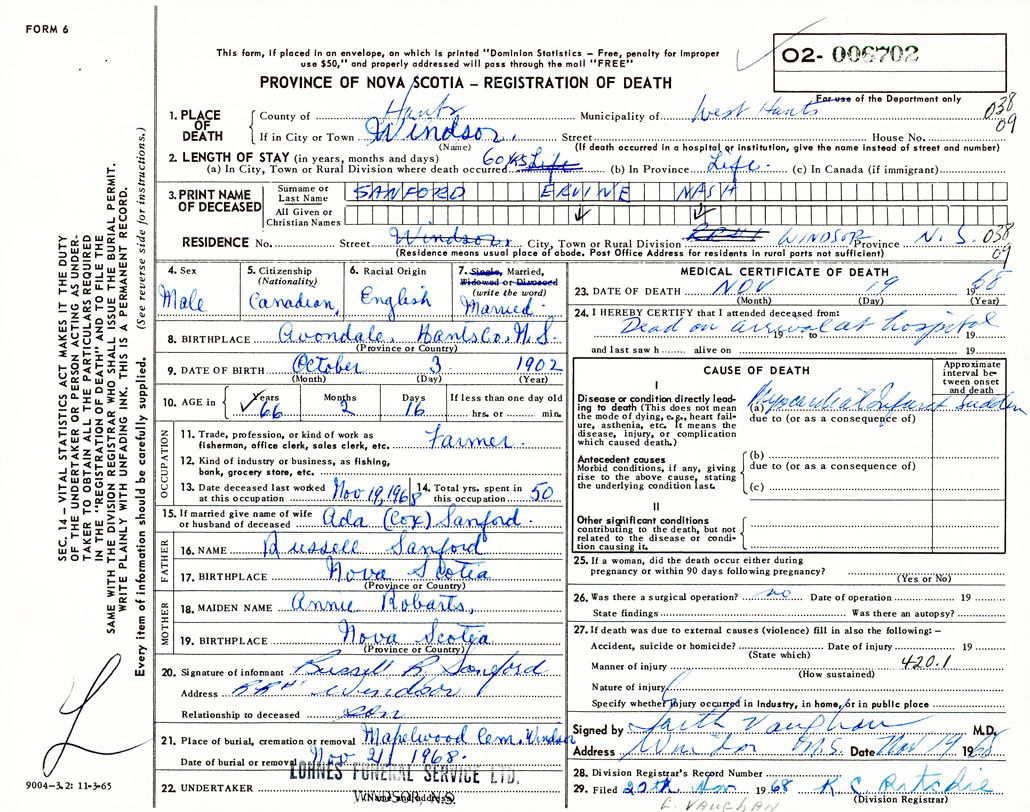 FORM 6
This form, if placed in an envelope, on which is printed "Dominion Statistics – Free, penalty for improper
use $50," and properly addressed will pass through the mail "FREE"
PROVINCE OF NOVA SCOTIA – REGISTRATION OF DEATH
02- 006702
For use of the Department only
038
09
1. PLACE OF DEATH
County of Hants Municipality of West Hants
If in City or Town Windsor. Street House No.
(Name) (If death occurred in a hospital or institution, give the name instead of street and number)
2. LENGTH OF STAY (in years, months and days)
(a) In City, Town or Rural Division where death occurred 60 yrs Life (b) In Province Life. (c) In Canada (if immigrant)
3. PRINT NAME OF DECEASED
Surname or Last Name SANFORD ERVINE NASH
All Given or Christian Names
RESIDENCE No. Street Windsor, City, Town or Rural Division WINDSOR Province N.S. 038
09
(Residence means usual place of abode. Post Office Address for residents in rural parts not sufficient)
4. Sex
Male
5. Citizenship
(Nationality)
Canadian,
6. Racial Origin
English
7. Single, Married,
Widowed or Divorced
(write the word)
Married.
8. BIRTHPLACE Avondale, Hants Co. N.S.
(Province or Country)
9. DATE OF BIRTH October 3 1902
(Month) (Day) (Year)
10. AGE in Years Months Days If less than one day old
66 2 16 hrs. or min.
OCCUPATION
11. Trade, profession, or kind of work as
fisherman, office clerk, sales clerk, etc. Farmer.
12. Kind of industry or business, as fishing,
bank, grocery store, etc.
13. Date deceased last worked
at this occupation Nov 19, 1968
14. Total yrs. spent in
this occupation 50
15. If married give name of wife
or husband of deceased Ada (Cox) Sanford.
FATHER
16. NAME Russell Sanford
17. BIRTHPLACE Nova Scotia
(Province or Country)
MOTHER
18. MAIDEN NAME Annie Robarts,
19. BIRTHPLACE Nova Scotia
(Province or Country)
20. Signature of informant Russell R. Sanford
Address Windsor
Relationship to deceased son
21. Place of burial, cremation or removal Mapelwood Cem. Windsor
Date of burial or removal Nov 21 1968.
LOHNES FUNERAL SERVICE LTD.
22. UNDERTAKER WINDSOR, N.S.
(Name and address)
MEDICAL CERTIFICATE OF DEATH
23. DATE OF DEATH NOV 19 1968
(Month) (Day) (Year)
24. I HEREBY CERTIFY that I attended deceased from:
Dead on arrival at hospital
19 to 19
and last saw h alive on 19
CAUSE OF DEATH
Approximate interval between onset and death
I
Disease or condition directly leading to death (This does not mean the mode of dying, e.g., heart failure, asthenia, etc. It means the disease, injury, or complication which caused death.)
(a) Myocardial Infarct sudden
due to (or as a consequence of)
Antecedent causes
Morbid conditions, if any, giving rise to the above cause, stating the underlying condition last.
(b)
due to (or as a consequence of)
(c)
II
Other significant conditions
contributing to the death, but not related to the disease or condition causing it.
25. If a woman, did the death occur either during
pregnancy or within 90 days following pregnancy?
(Yes or No)
26. Was there a surgical operation? no Date of operation 19
State findings Was there an autopsy?
27. If death was due to external causes (violence) fill in also the following: –
Accident, suicide or homicide? Date of injury 19
(State which)
Manner of injury 420.1
(How sustained)
Nature of injury
Specify whether injury occurred in Industry, in home, or in public place
Signed by Vaughan M.D.
Address Windsor N.S. Date Nov 19 1968
28. Division Registrar's Record Number
29. Filed 20th Nov 1968 K C Ritchie
(Division Registrar)
E. VAUGHAN
SEC. 14 – VITAL STATISTICS ACT MAKES IT THE DUTY
OF THE UNDERTAKER OR PERSON ACTING AS UNDER-
TAKER TO OBTAIN ALL THE PARTICULARS REQUIRED
IN THE "REGISTRATION OF DEATH" AND TO FILE THE
SAME WITH THE DIVISION REGISTRAR WHO SHALL ISSUE THE BURIAL PERMIT.
WRITE PLAINLY WITH UNFADING INK. THIS IS A PERMANENT RECORD.
Every item of information should be carefully supplied. (See reverse side for instructions.)
9004-3.2: 11-3-65